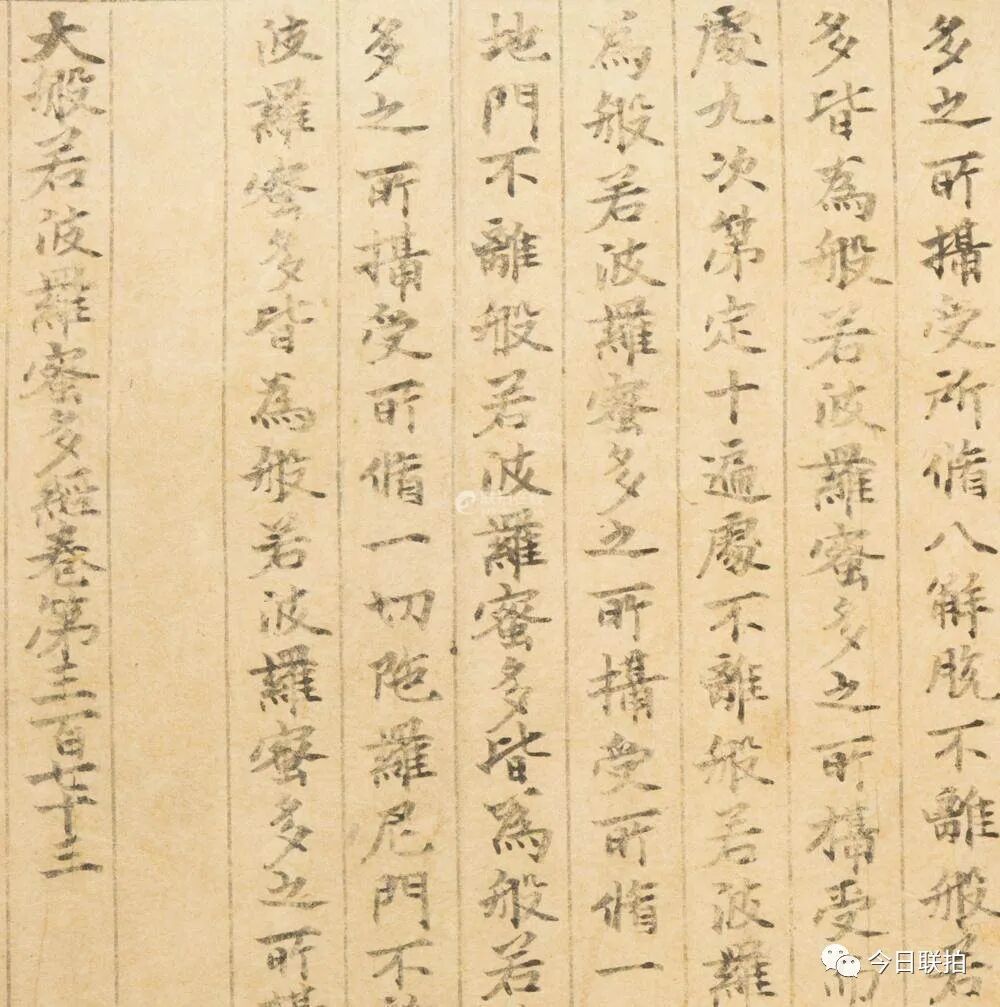 多之所攝受所脩八解脫不離般若
多皆為般若波羅蜜多之所攝受所
處九次第定十遍處不離般若波羅
為般若波羅蜜多之所攝受所脩一
地門不離般若波羅蜜多皆為般若
多之所攝受所脩一切陁羅尼門不
波羅蜜多皆為般若波羅蜜多之所攝
大般若波羅蜜多經卷第三百七十三
今日联拍